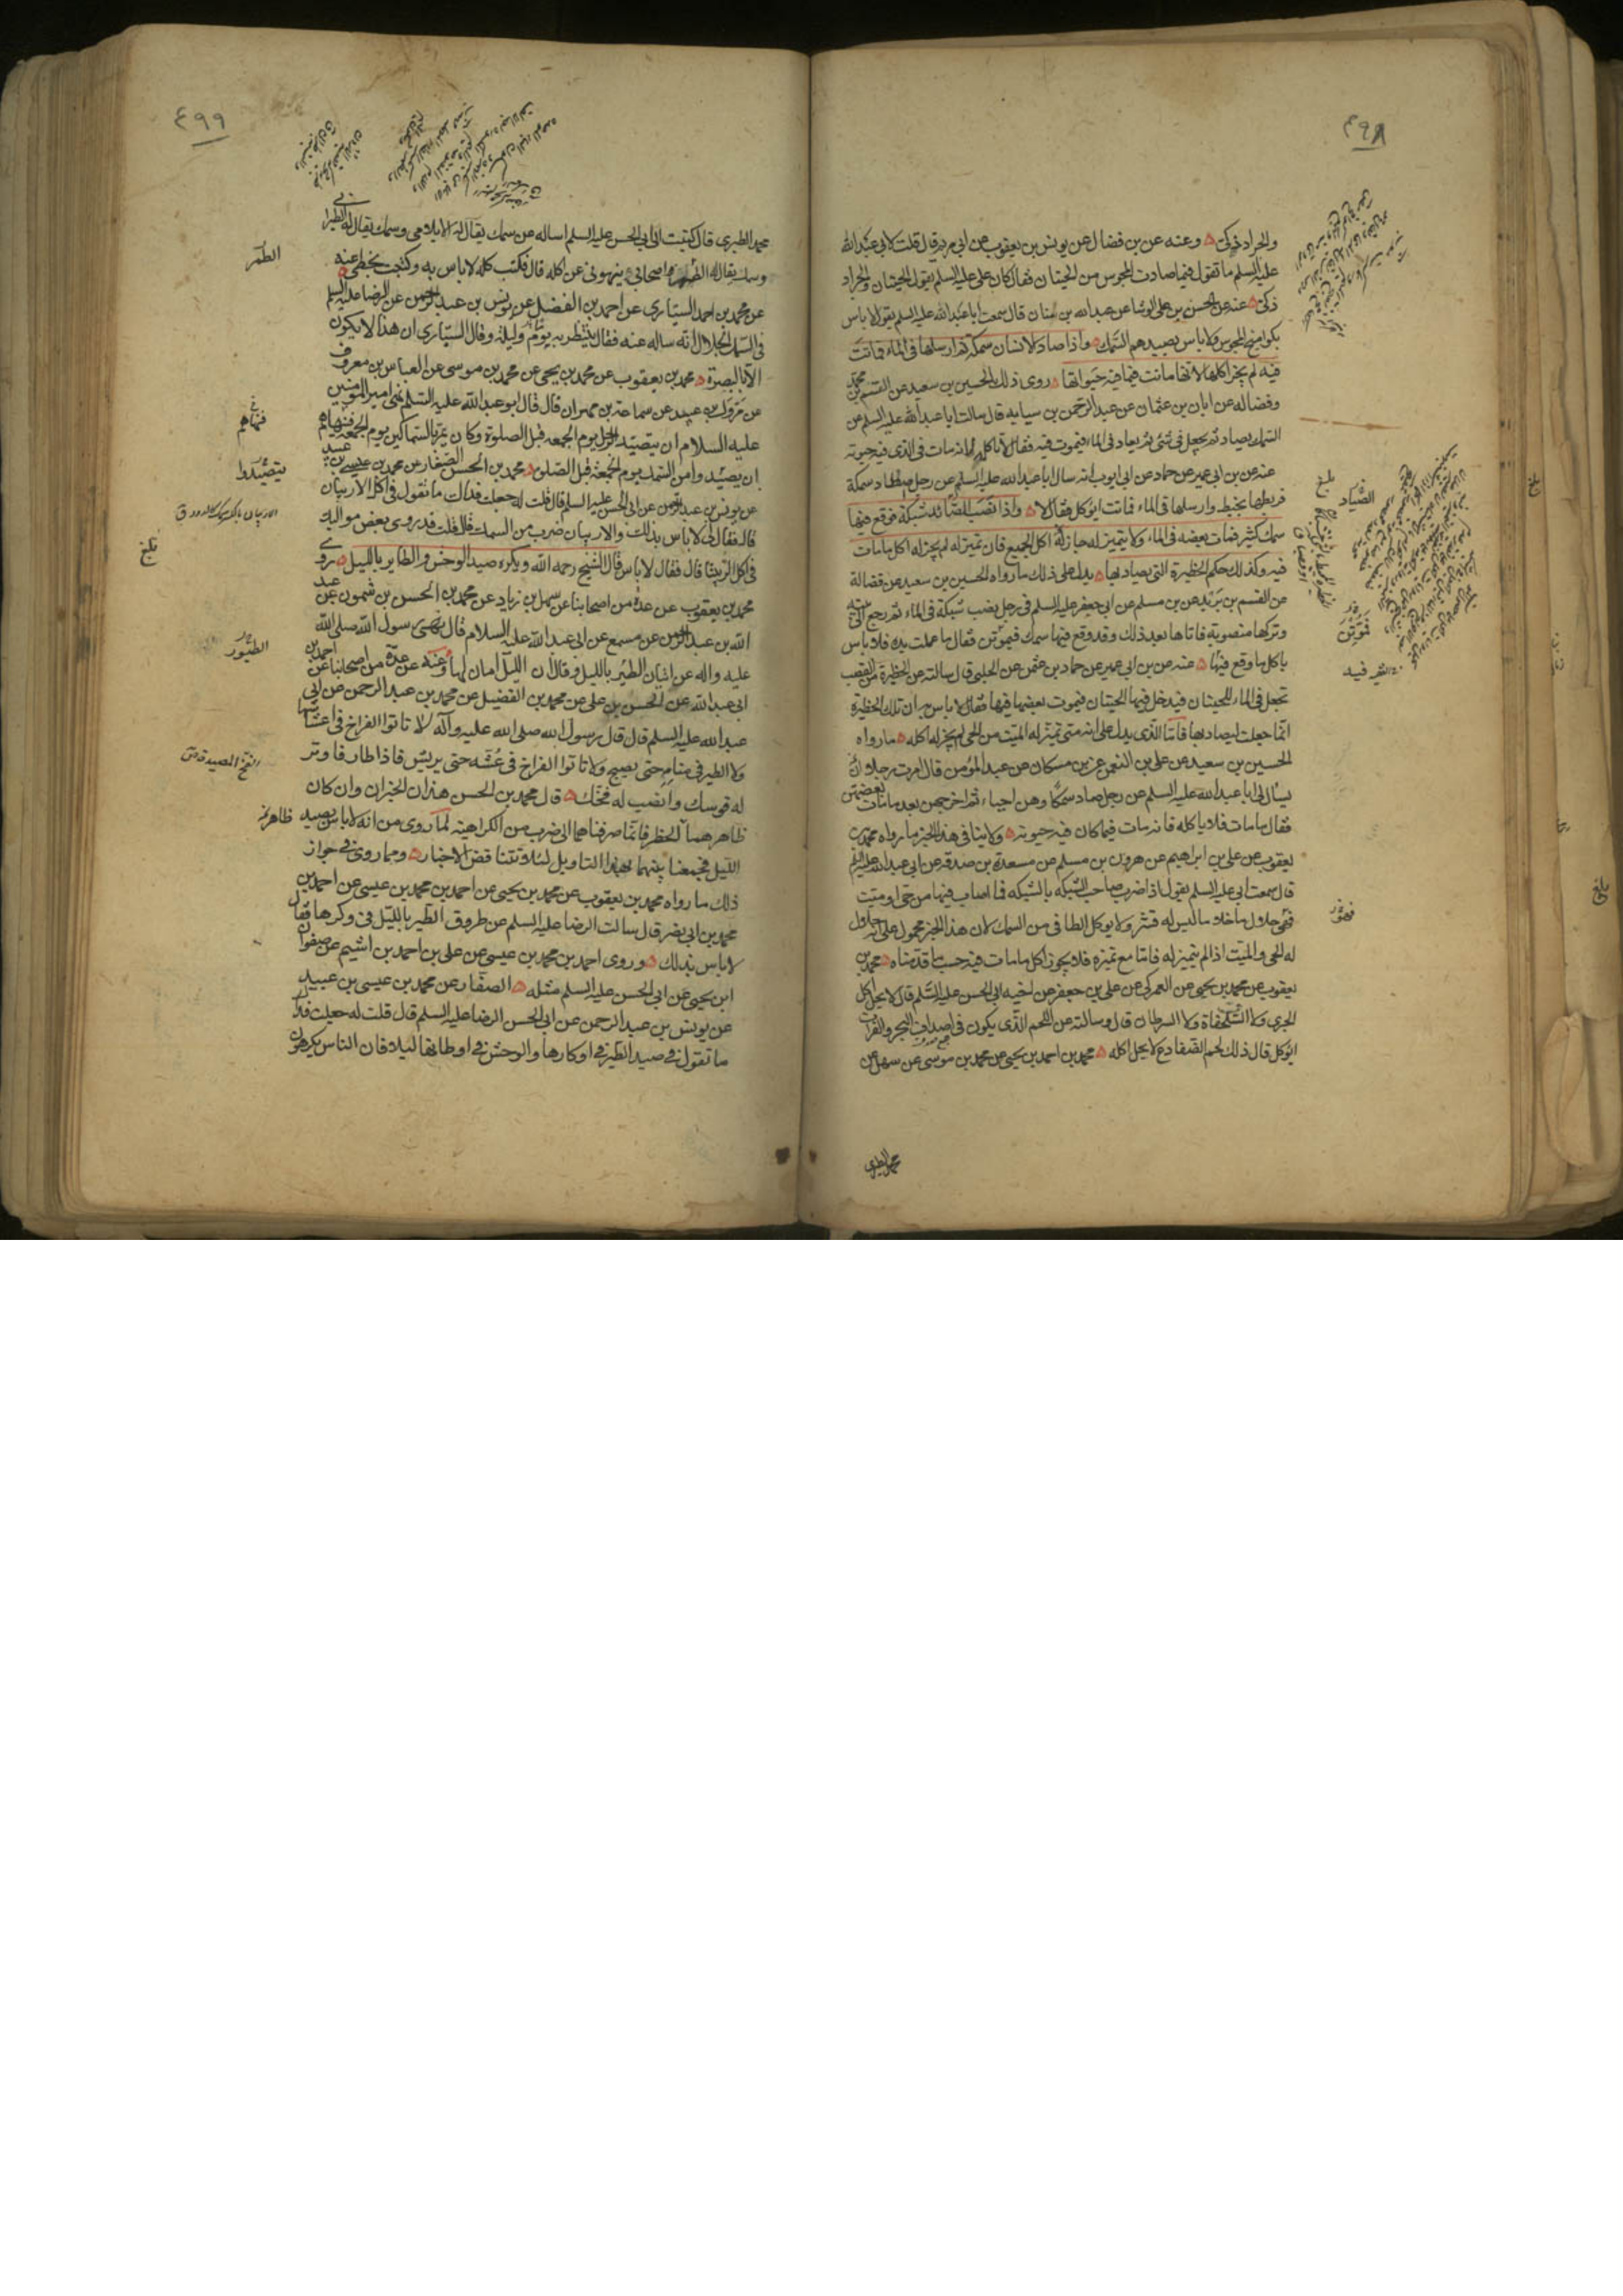 ٤٩٨
والجراد ذكي وعنه عن بن فضال عن يونس بن يعقوب عن ابي مريم قال قلت لابي عبد الله
عليه السلم ما تقول فيما صادت المجوس من الحيتان فقال كان علي عليه السلم يقول الحيتان والجراد
ذكي عنه عن الحسن بن علي الوشا عن عبد الله بن سنان قال سمعت ابا عبد الله عليه السلم يقول لا باس
المجوس ولا باس بصيدهم السمك واذا صاد الانسان سمكة ثم ارسلها في الماء فماتت
فيه لم يجز اكلها لانها ماتت فيما فيه حيواتها روى ذلك الحسين بن سعيد عن القسم بن محمد
وفضاله عن ابان بن عثمان عن عبد الرحمن بن سيابه قال سالت ابا عبد الله عليه السلم عن
السمك يصاد ثم يجعل في شئ ثم يعاد في الماء فيموت فيه فقال لا تاكله لانه مات في الذي فيه حيوته
عنه عن بن ابي عمير عن حماد عن ابي ايوب انه سال ابا عبد الله عليه السلم عن رجل اصطاد سمكة
فربطها بخيط وارسلها في الماء فماتت ايوكل فقال لا واذا نصب الصياد شبكة فوقع فيها
سمك كثير فمات بعضه في الماء ولا يتميز له جاز له اكل الجميع فان تميز له لم يجز له اكل ما مات
فيه وكذلك حكم الحظيرة التي يصاد بها يدل على ذلك ما رواه الحسين بن سعيد عن فضالة
عن القسم بن بريد عن بن مسلم عن ابي جعفر عليه السلم في رجل نصب شبكة في الماء ثم رجع الى بيته
وتركها منصوبة فاتاها بعد ذلك وقد وقع فيها سمك فيموتن فقال ما عملت يده فلا باس
باكل ما وقع فيها عنه عن بن ابي عمير عن حماد بن عثمن عن الحلبي قال سالته عن الحظيرة من القصب
تجعل في الماء للحيتان فيدخل فيها الحيتان فيموت بعضها فيها فقال لا باس به ان تلك الحظيرة
انما جعلت ليصاد بها فاما الذي يدل على انه متى تميز له الميت من الحي لم يجز له اكله ما رواه
الحسين بن سعيد عن علي بن النعمن عن بن مسكان عن عبد المؤمن قال امرت رجلا ان
يسال لي ابا عبد الله عليه السلم عن رجل صاد سمكا وهن احياء ثم اخرجهن بعد ما مات بعضهن
فقال ما مات فلا ياكله فانه مات فيما كان فيه حيوته ولا ينافي هذا الخبر ما رواه محمد بن
يعقوب عن علي بن ابراهيم عن هرون بن مسلم عن مسعدة بن صدقه عن ابي عبد الله عليه السلم
قال سمعت ابي عليه السلم يقول اذا ضرب صاحب الشبكه بالشبكه فما اصاب فيها من حي او ميت
فهو حلال ما خلا ما ليس له قشر ولا يوكل الطافي من السمك لان هذا الخبر محمول على انه حلال
له الحي والميت اذا لم يتميز له فاما مع تميزه فلا يجوز اكل ما مات فيه حسب ما قدمناه محمد بن
يعقوب عن محمد بن يحيى عن العمركي عن علي بن جعفر عن اخيه ابي الحسن عليه السلم قال لا يحل اكل
الجري ولا السلحفاة ولا السرطان قال وسالته عن اللحم الذي يكون في اصداف البحر والفرات
ايوكل قال ذلك لحم الضفادع لا يحل اكله محمد بن احمد بن يحيى عن محمد بن موسى عن سهل عن
محمد الطبري
بلغ
الصياد
فيموتن
فهو
٤٩٩
محمد الطبري قال كتبت الى ابي الحسن عليه السلم اساله عن سمك يقال له الابلامي وسمك يقال له الطبراني
وسمك يقال له الطمر واصحابي ينهوني عن اكله قال فكتب كله لا باس به وكتبت بخطي عنه
عن محمد بن احمد السياري عن احمد بن الفضل عن يونس بن عبد الرحمن عن الرضا عليه السلم
في السمك الجلال انه ساله عنه فقال ينتظر به يوم وليلة وقال السياري ان هذا لا يكون
الا بالبصرة محمد بن يعقوب عن محمد بن يحيى عن محمد بن موسى عن العباس بن معروف
عن مروك بن عبيد عن سماعة بن مهران قال قال ابو عبد الله عليه السلم نهى امير المؤمنين
عليه السلام ان يتصيد الرجل يوم الجمعه قبل الصلوة وكان يمر بالسماكين يوم الجمعه فينهاهم
ان يصيدوا من السمك يوم الجمعة قبل الصلوة محمد بن الحسن الصفار عن محمد بن عيسى بن عبيد
عن يونس بن عبد الرحمن عن ابي الحسن عليه السلم قال قلت له جعلت فداك ما تقول في اكل الاربيان
قال فقال لي لا باس بذلك والاربيان ضرب من السمك قال قلت قد روى بعض مواليك
في اكل الربيثا قال فقال لا باس قال الشيخ رحمه الله ويكره صيد الوحش والطاير بالليل روى
محمد بن يعقوب عن عدة من اصحابنا عن سهل بن زياد عن محمد بن الحسن بن شمون عن عبد
الله بن عبد الرحمن عن مسمع عن ابي عبد الله عليه السلام قال نهى رسول الله صلى الله
عليه واله عن اتيان الطير بالليل وقال ان الليل امان لها وعنه عن عدة من اصحابنا عن احمد بن
ابي عبد الله عن الحسن بن علي عن محمد بن الفضيل عن محمد بن عبد الرحمن عن ابي
عبد الله عليه السلم قال قال رسول الله صلى الله عليه وآله لا تاتوا الفراخ في اعشاشها
ولا الطير في منامه حتى يصبح ولا تاتوا الفراخ في عشه حتى يريش فاذا طار فاوتر
له قوسك وانصب له فخك قال محمد بن الحسن هذان الخبران وان كان
ظاهرهما الحظر فانما صرفناهما الى ضرب من الكراهية لما روى من انه لا باس بصيد
الليل فجمعنا بينهما بهذا التاويل لئلا تتناقض الاخبار ومما روى في جواز
ذلك ما رواه محمد بن يعقوب عن محمد بن يحيى عن احمد بن محمد بن عيسى عن احمد بن
محمد بن ابي نصر قال سالت الرضا عليه السلم عن طروق الطير بالليل في وكرها فقال
لا باس بذلك وروى احمد بن محمد بن عيسى عن علي بن احمد بن اشيم عن صفوان
ابن يحيى عن ابي الحسن عليه السلم مثله الصفار عن محمد بن عيسى بن عبيد
عن يونس بن عبد الرحمن عن ابي الحسن الرضا عليه السلم قال قلت له جعلت فداك
ما تقول في صيد الطير في اوكارها والوحش في اوطانها ليلا فان الناس يكرهون
الطمر
فنهاهم
يتصيدوا
بلغ
الطيور
الفخ المصيدة ص
ظاهره